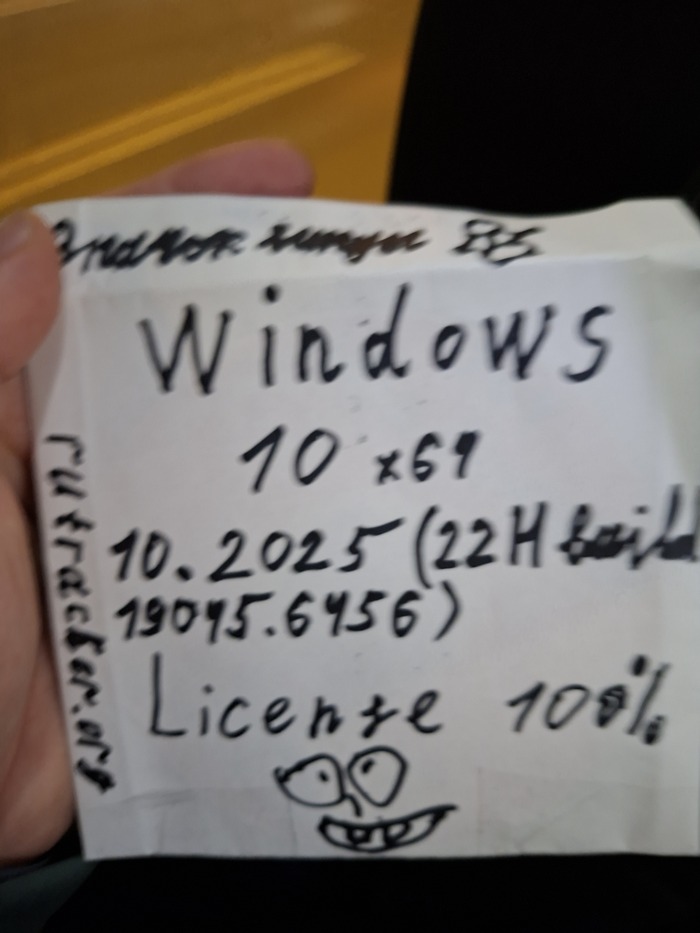 Windows
10 x64
10.2025 (22H build
19045.6456)
License 100%
rutracker.org